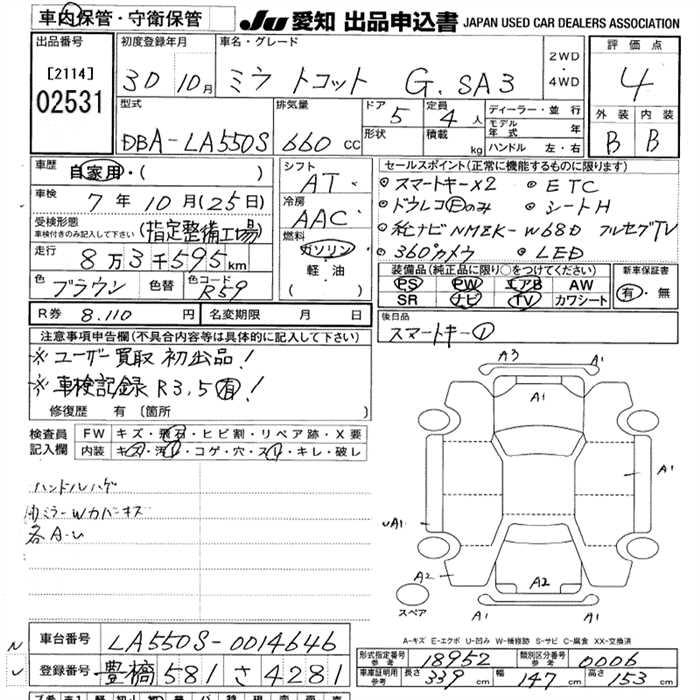 車内保管・守衛保管
JU 愛知 出品申込書 JAPAN USED CAR DEALERS ASSOCIATION
出品番号 [2114] 02531
初度登録年月 30 10月
車名・グレード ミラ トコット G.SA3
2WD・4WD
評価点 4
外装 B 内装 B
型式 DBA-LA550S
排気量 660 cc
ドア 5 定員 4人
形状 積載 kg
ディーラー・並行
モデル年式 年
ハンドル 左・右
車歴 自家用・( )
車検 7年10月(25日)
受検形態 車検付きのみ記入して下さい (指定整備工場)
走行 8万3千595km
色 ブラウン 色替 色コード R59
シフト AT
冷房 AAC
燃料 ガソリン・軽・油 ( )
セールスポイント(正常に機能するものに限ります)
◎スマートキー×2 ◎ETC
◎ドラレコFのみ ◎シートH
◎純ナビNMZK-W68D フルセグTV
◎360°カメラ ◎LED
装備品(純正品に限り○をつけてください)
PS PW エアB AW
SR ナビ TV カワシート
新車保証書 有・無
R券 8.110円 名変期限 月 日
後日品 スマートキー①
注意事項申告欄(不具合内容等は具体的に記入して下さい)
※ユーザー買取 初出品!
※車検記録R3,5有!
修復歴 有 [箇所 ]
検査員記入欄 FW キズ・飛石・ヒビ割・リペア跡・X要
内装 キズ・汚レ・コゲ・穴・スレ・キレ・破レ
ハンドルハゲ
内ミラーWカバーキズ
各A-U
A3 A1
A1
A1
UA1
A2
A2
A1 A1
スペア
A-キズ E-エクボ U-凹み W-補修跡 S-サビ C-腐食 XX-交換済
車台番号 LA550S-0014646
登録番号 豊橋 581 さ 4281
形式指定番号 参考 18952 類別区分番号 参考 0006
車庫証明用 参考 長さ 339cm 幅 147cm 高さ 153cm